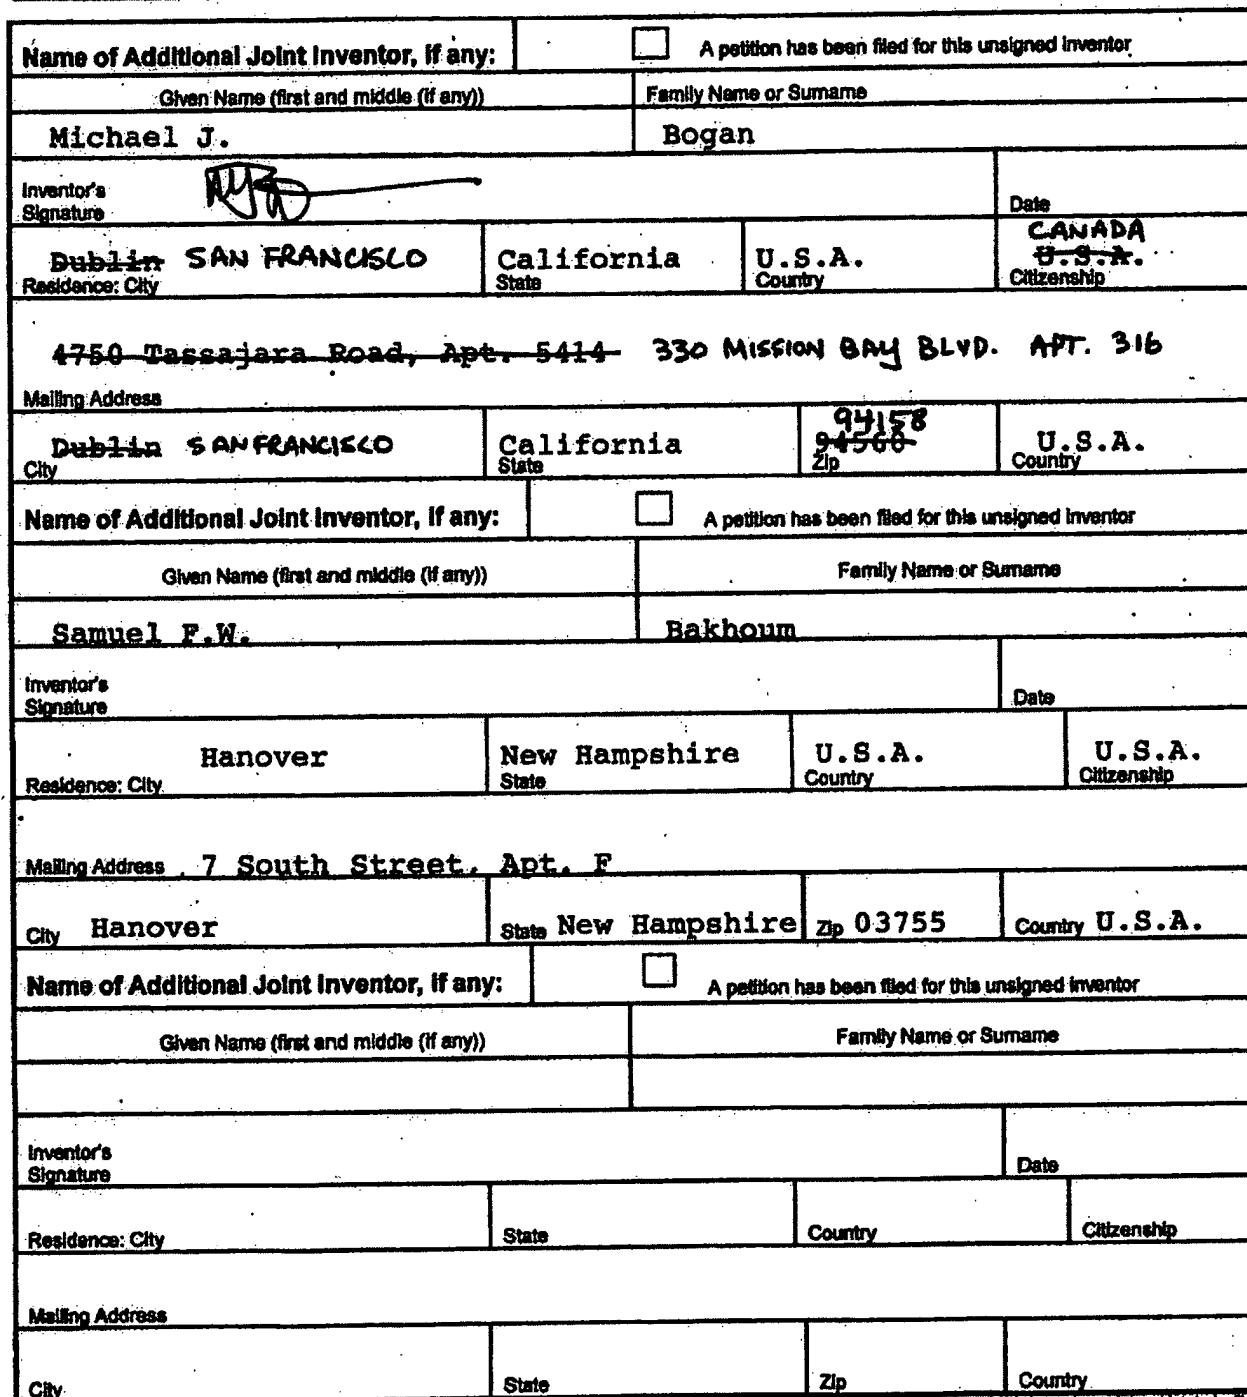 Name of Additional Joint Inventor, if any: A petition has been filed for this unsigned inventor
Given Name (first and middle (if any)) Family Name or Surname
Michael J. Bogan
Inventor's
Signature Date
Dublin SAN FRANCISCO California U.S.A. CANADA
U.S.A.
Residence: City State Country Citizenship
4750 Tassajara Road, Apt. 5414 330 MISSION BAY BLVD. APT. 316
Mailing Address
94158
Dublin SAN FRANCISCO California 94568 U.S.A.
City State Zip Country
Name of Additional Joint Inventor, if any: A petition has been filed for this unsigned inventor
Given Name (first and middle (if any)) Family Name or Surname
Samuel F.W. Bakhoum
Inventor's
Signature Date
Hanover New Hampshire U.S.A. U.S.A.
Residence: City State Country Citizenship
Mailing Address 7 South Street, Apt. F
City Hanover State New Hampshire Zip 03755 Country U.S.A.
Name of Additional Joint Inventor, if any: A petition has been filed for this unsigned inventor
Given Name (first and middle (if any)) Family Name or Surname
Inventor's
Signature Date
Residence: City State Country Citizenship
Mailing Address
City State Zip Country